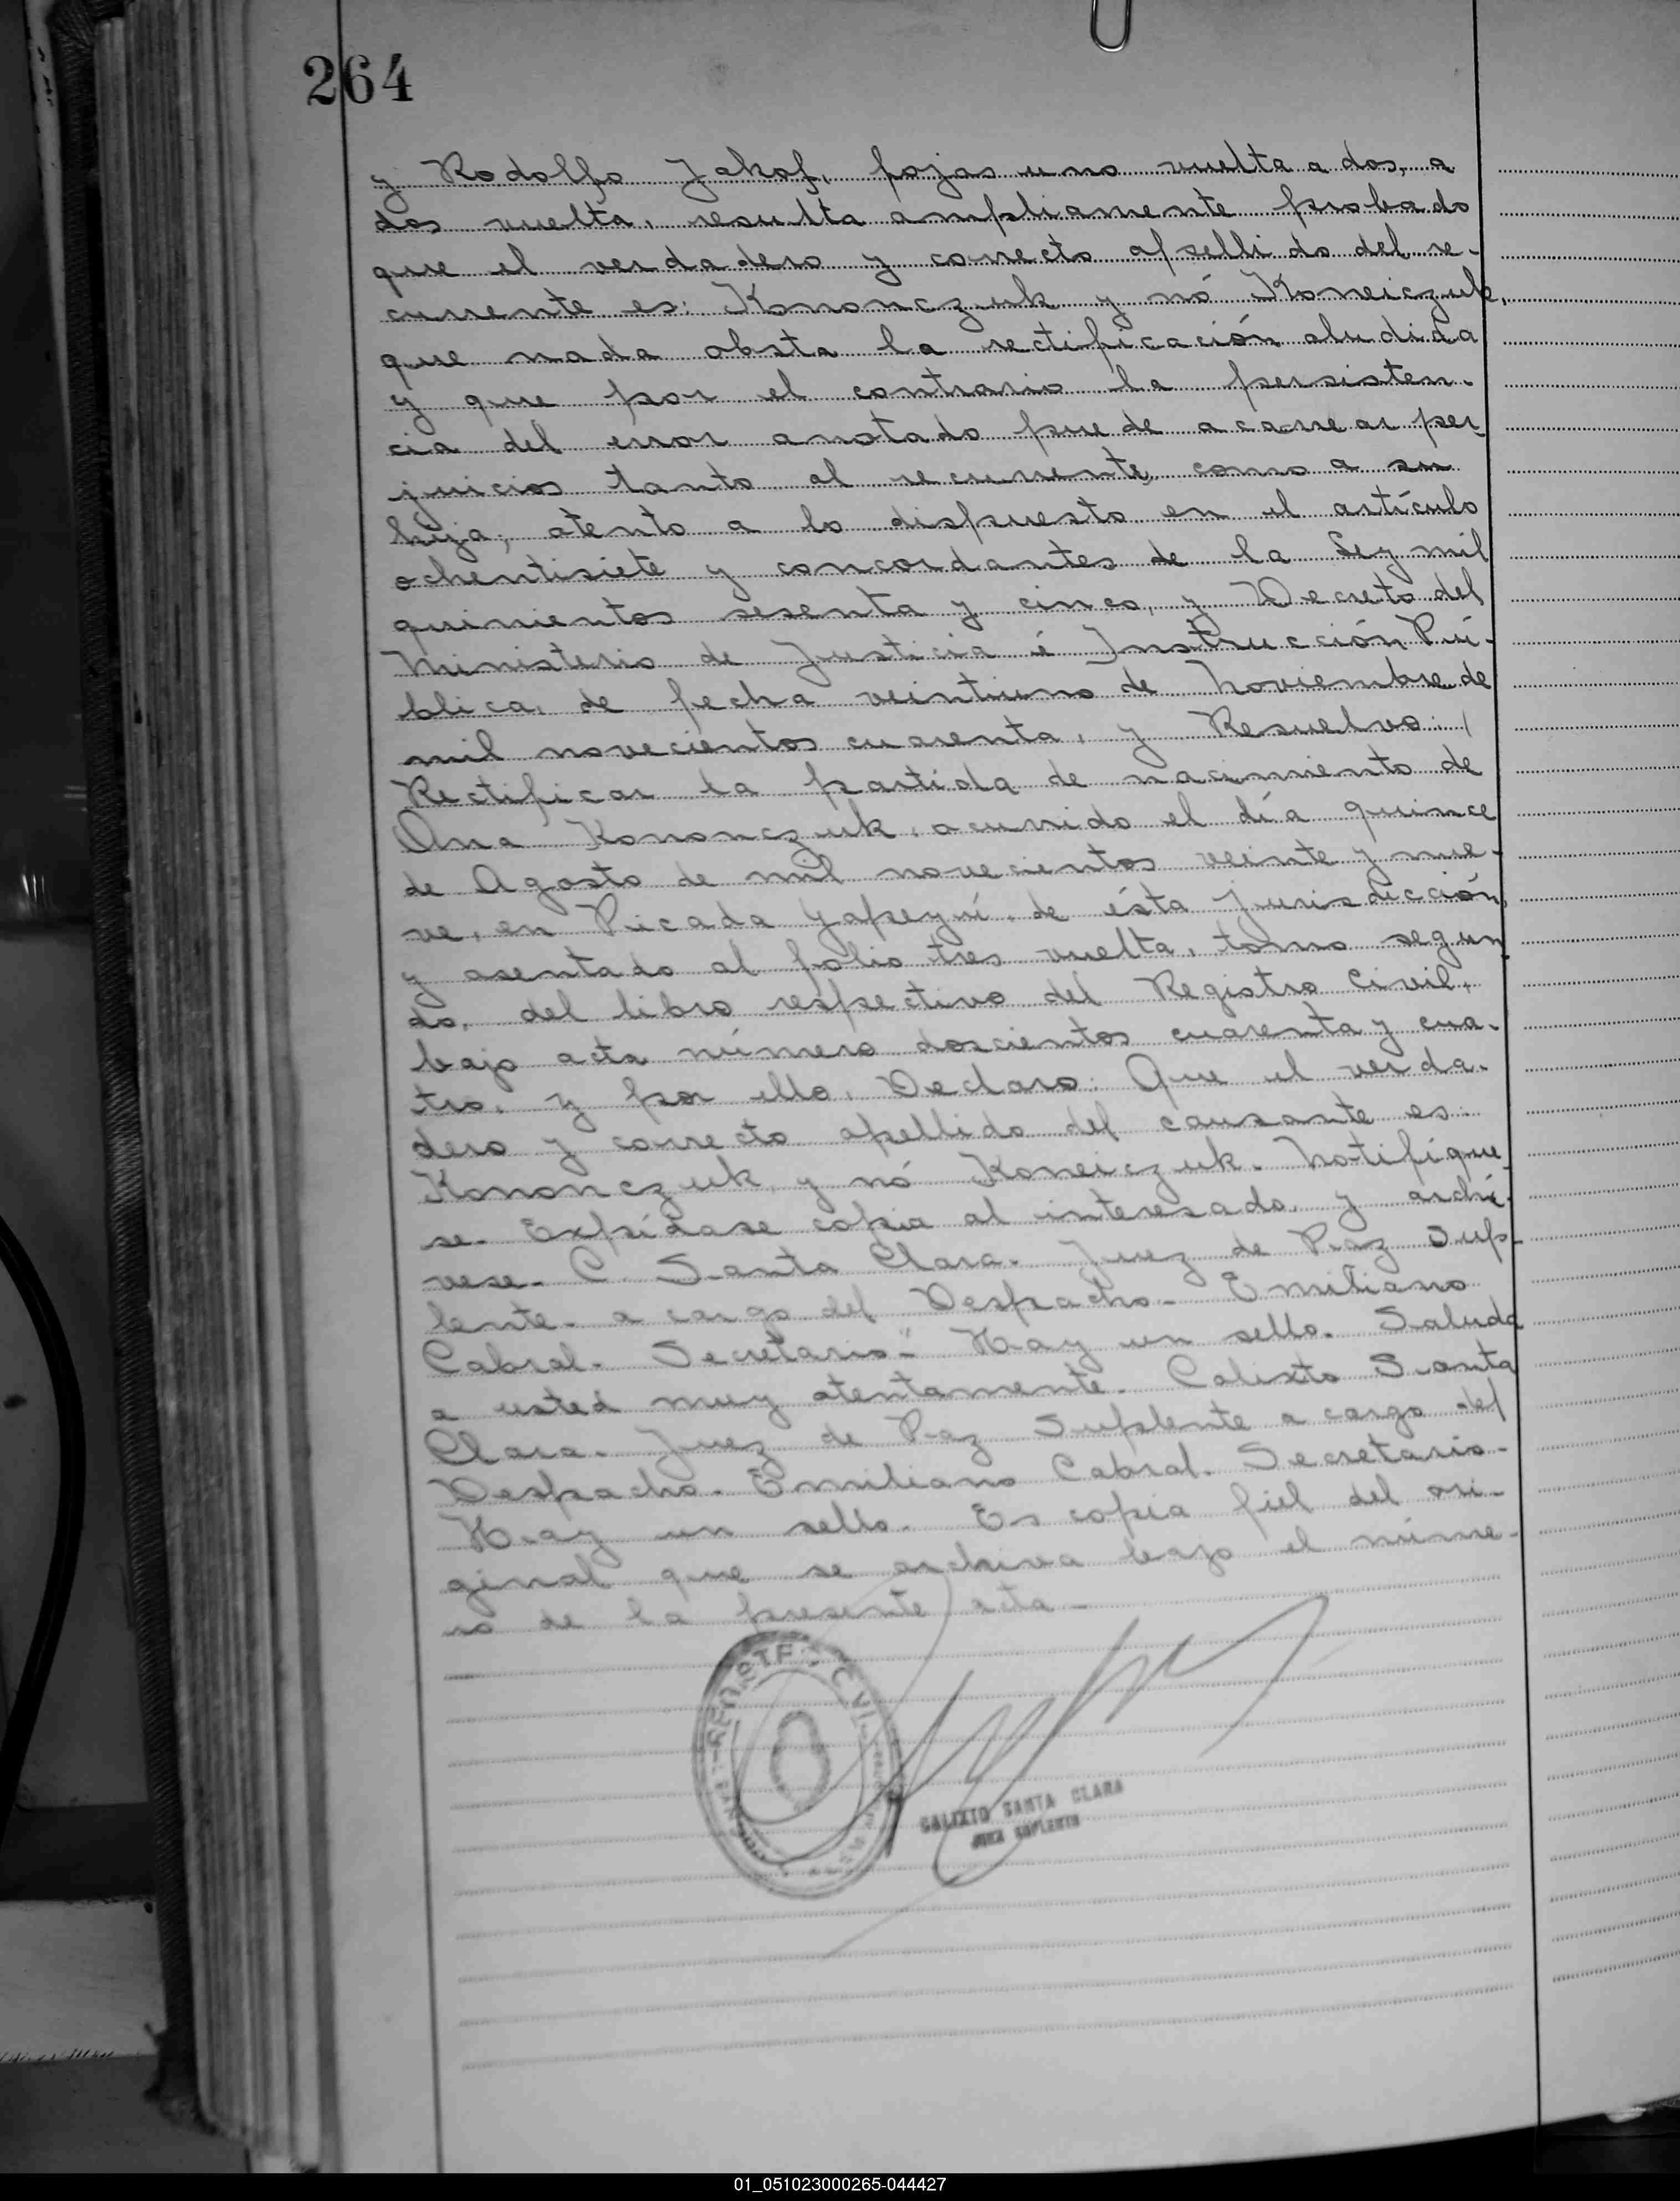 264
y Rodolfo Jakof, fojas uno vuelta a dos, a
dos vuelta, resulta ampliamente probado
que el verdadero y correcto apellido del re-
currente es: Kononczuk y nó Koneiczuk,
que nada obsta la rectificación aludida
y que por el contrario la persisten-
cia del error anotado puede acarrear per
juicios tanto al recurrente, como a su
hija; atento a lo dispuesto en el artículo
ochentisiete y concordantes de la Ley mil
quinientos sesenta y cinco, y Decreto del
Ministerio de Justicia é Instrucción Pú-
blica, de fecha veintiuno de Noviembre de
mil novecientos cuarenta, y Resuelvo: /
Rectificar la partida de nacimiento de
Ana Kononczuk, ocurrido el día quince
de Agosto de mil novecientos veinte y nue-
ve, en Picada Yapeyú, de ésta Jurisdicción,
y asentado al folio tres vuelta, tomo segun
do, del libro respectivo del Registro Civil,
bajo acta número doscientos cuarenta y cua-
tro, y por ello, Declaro: Que el verda-
dero y correcto apellido del causante es:
Kononczuk, y nó Koneiczuk. Notifíque
se. Expídase copia al interesado, y archí-
vese. C. Santa Clara. Juez de Paz Sup-
lente. a cargo del Despacho. Emiliano
Cabral. Secretario." Hay un sello. Saluda
a usted muy atentamente. Calixto Santa
Clara. Juez de Paz Suplente a cargo del
Despacho. Emiliano Cabral. Secretario.
Hay un sello. Es copia fiel del ori-
ginal que se archiva bajo el núme-
ro de la presente acta.
CALIXTO SANTA CLARA
JUEZ SUPLENTE
01_051023000265-044427